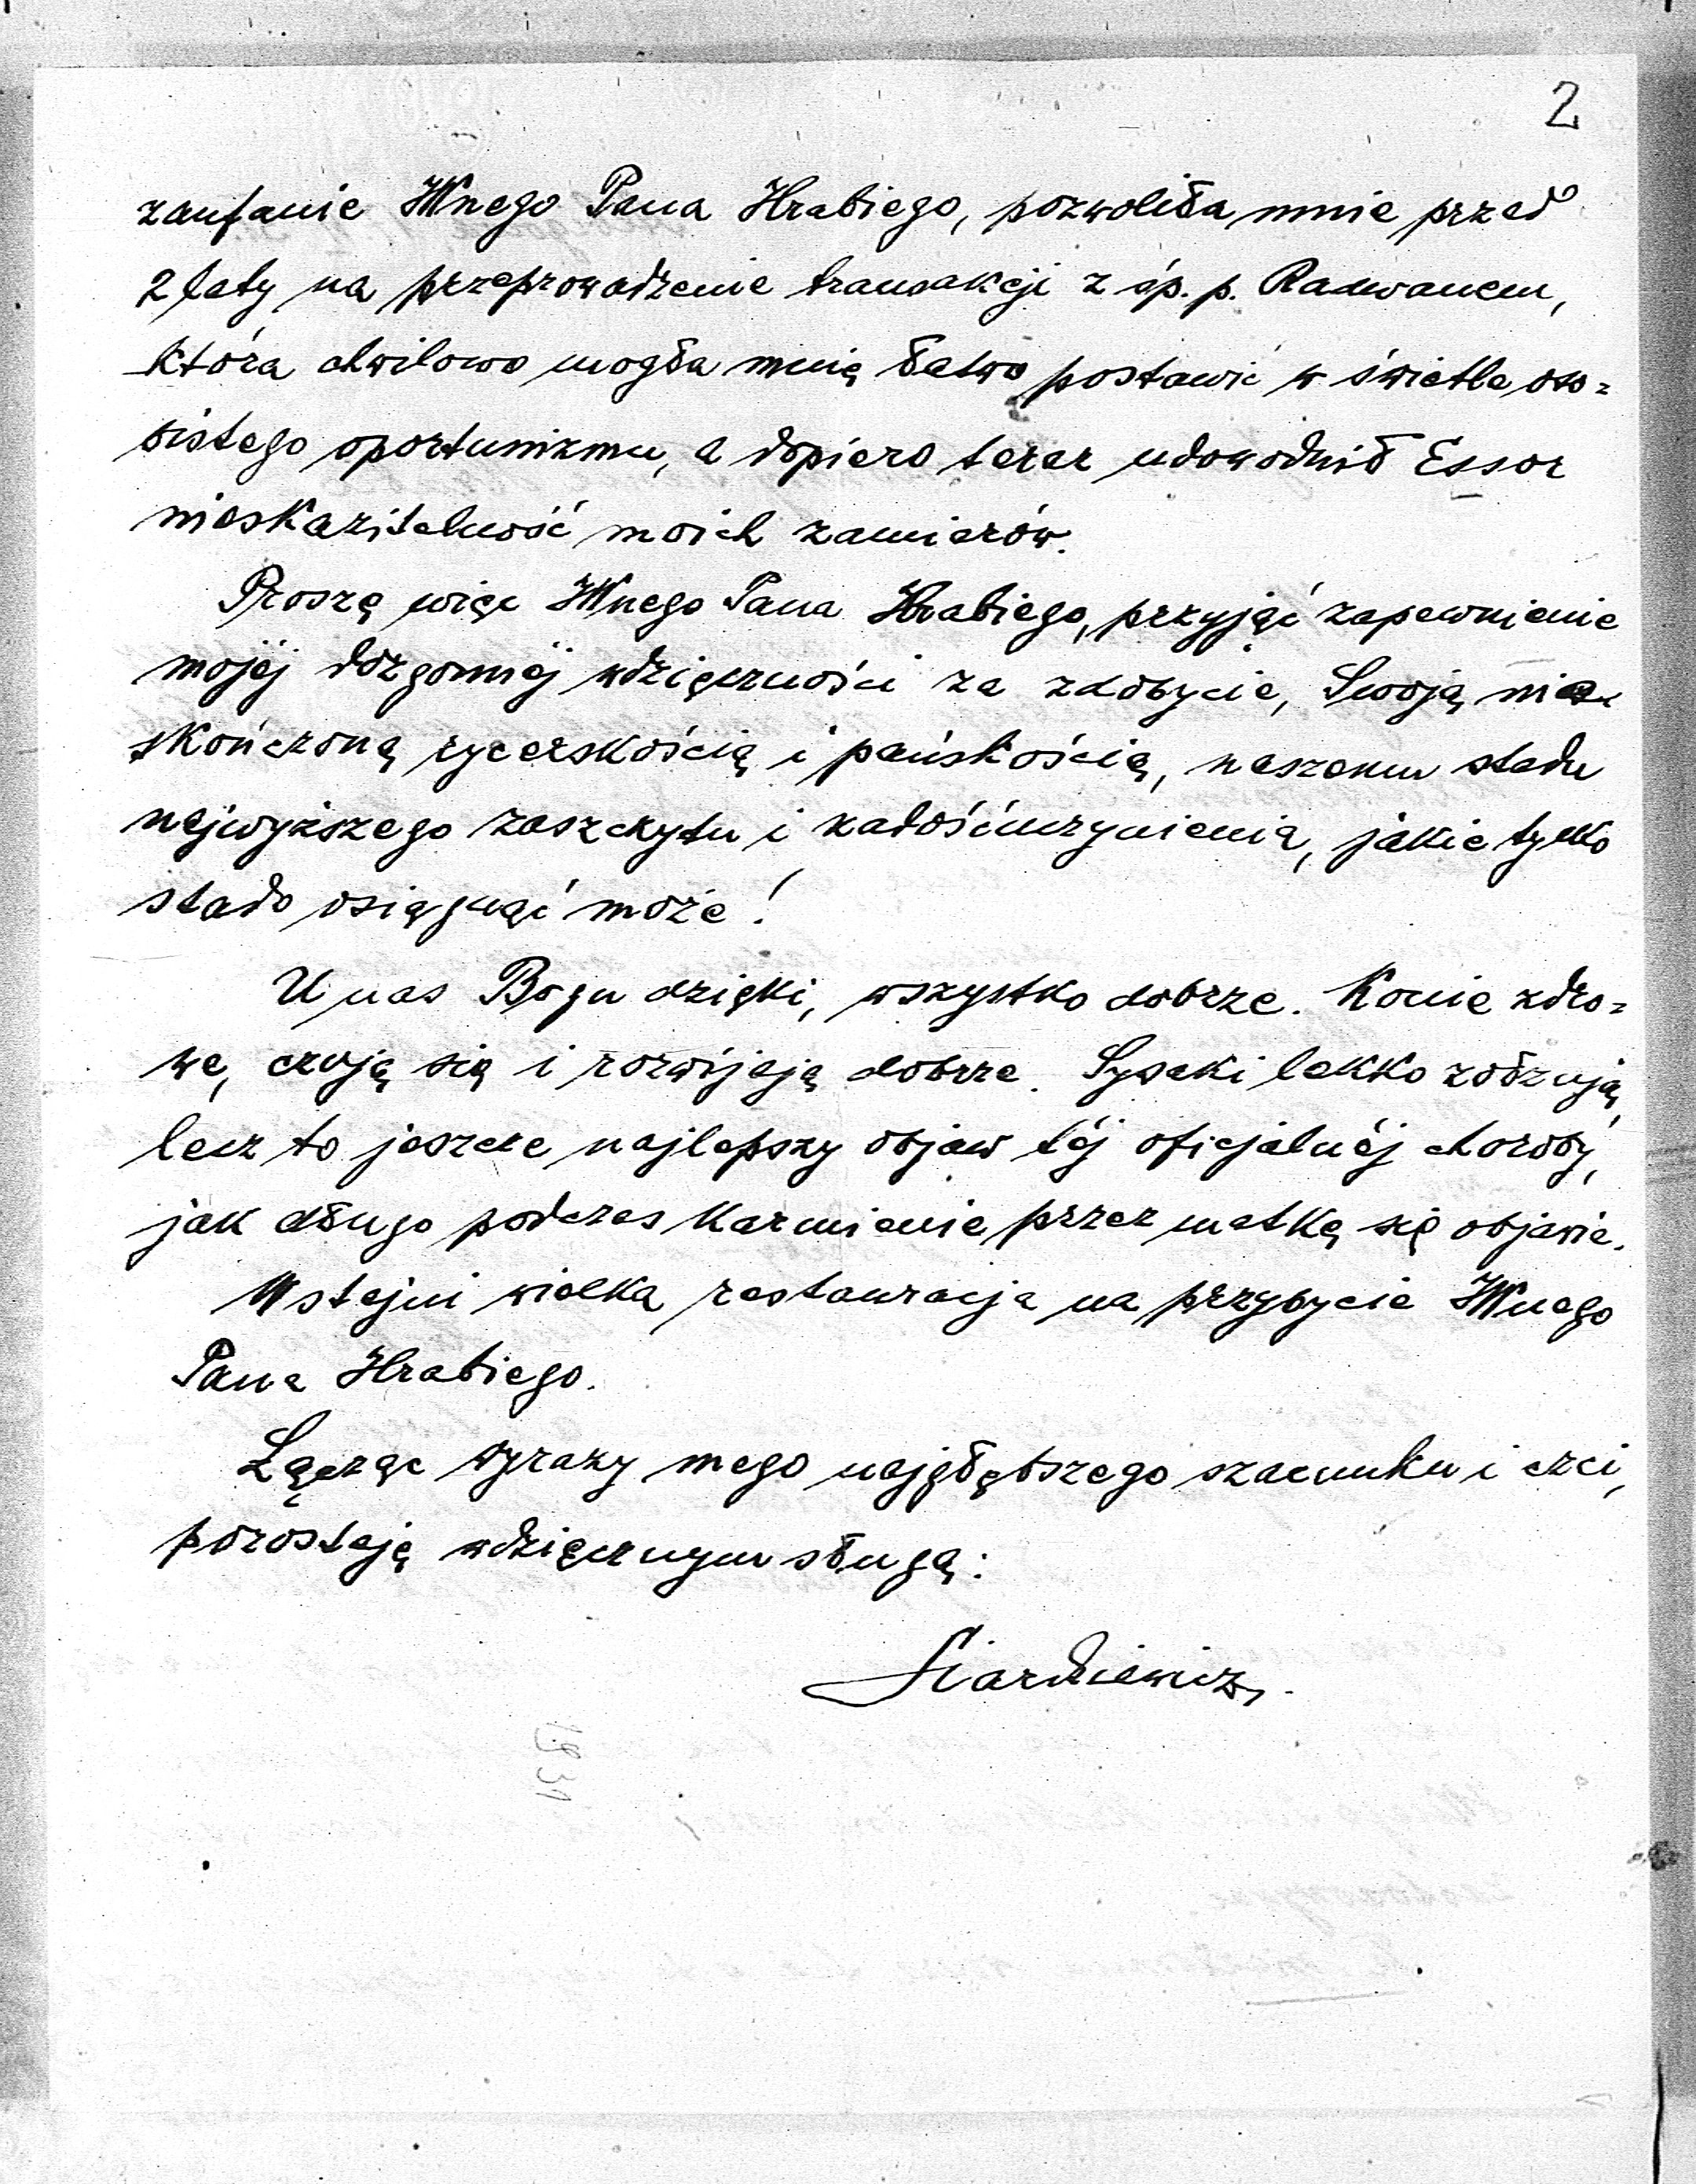 2
zaufanie JWnego Pana Hrabiego, pozwoliła mnie przed
2 laty na przeprowadzenie transakcji z śp. p. Radwanem,
która chwilowo mogła mnię łatwo postawić w świetle oso=
bistego oportunizmu, a dopiero teraz udowodnił Essor
nieskazitelność moich zamiarów.
Proszę więc JWnego Pana Hrabiego, przyjąć zapewnienie
mojéj dozgonnéj wdzięczności za zdobycie, Swoją nie=
skończoną rycerskością i pańskością, naszemu stadu
najwyższego zaszczytu i zadośćuczynienia, jakie tylko
stado osiągnąć może!
U nas Bogu dzięki, wszystko dobrze. Konie zdro=
we, czują się i rozwijają dobrze. Sysaki lekko zołzują,
lecz to jeszcze najlepszy objaw téj oficjalnéj choroby,
jak długo podczas karmienia przez matkę się objawia.
W stajni wielka restauracja na przybycie JWnego
Pana Hrabiego.
Łącząc wyrazy mego najgłębszego szacunku i czci,
pozostaję wdzięcznym sługą:
Ziarkiewicz
1931